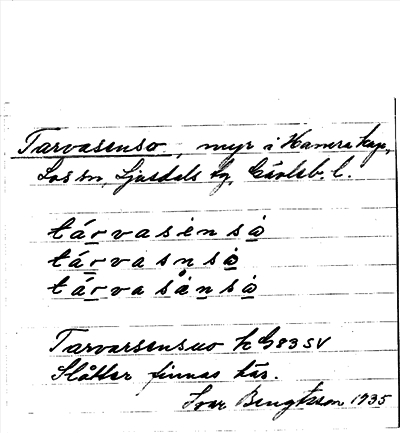 Tarvasenso, myr i Hamra kap,
Los sn, Ljusdals tg, Gävleb. l.
tárvasènsò
tárvàsnsò
tárvasànsò
Tarvarsensuo k G83 SV
Slåtter finnas här.
Ivar Bengtsson 1935